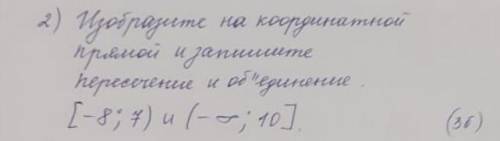 2) Изобразите на координатной
прямой и запишите
пересечение и об"единение.
[-8; 7) и (-∞; 10]. (3б)